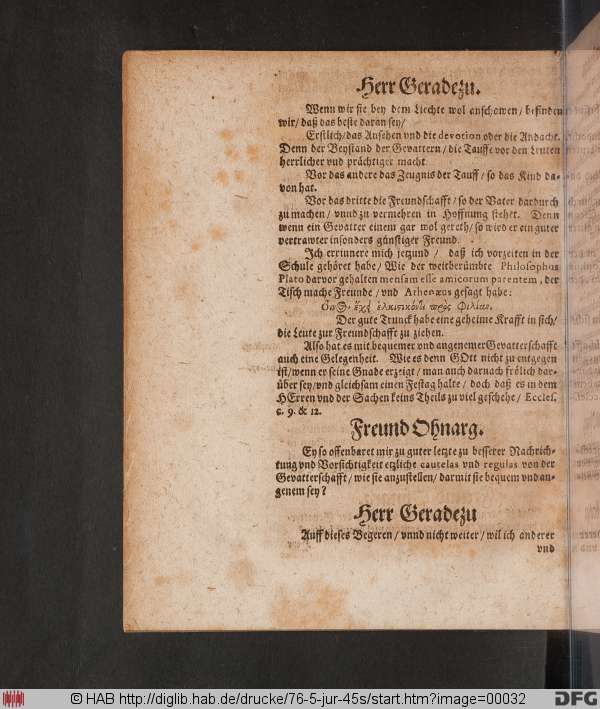 Herr Geradezu.
Wenn wir sie bey dem Liechte wol anschowen / befinden
wir / daß das beste daran sey /
Erstlich / das Ansehen vnd die devotion oder die Andacht.
Denn der Beystand der Gevattern / die Tauffe vor den Leuten
herrlicher vnd prächtiger macht
Vor das andere das Zeugnis der Tauff / so das Kind da-
von hat.
Vor das dritte die Freundschafft / so der Vater dardurch
zu machen / vnnd zu vermehren in Hoffnung stehet. Denn
wenn ein Gevatter einem gar wol gereth / so wird er ein guter
vertrawter insonders günstiger Freund.
Ich errinnere mich jetzund / daß ich vorzeiten in der
Schule gehöret habe / Wie der weitberümbte Philosophus
Plato darvor gehalten mensam esse amicorum parentem, der
Tisch mache Freunde / vnd Athenæus gesagt habe:
ἑλκυστικόν πρὸς φιλίαν,
Der gute Trunck habe eine geheime Krafft in sich /
die Leute zur Freundschafft zu ziehen.
Also hat es mit bequemer vnd angenemer Gevatterschafft
auch eine Gelegenheit. Wie es denn GOtt nicht zu entgegen
ist / wenn er seine Gnade erzeigt / man auch darnach frölich dar-
über sey / vnd gleichsam einen Festag halte / doch daß es in dem
HErren vnd der Sachen keins Theils zu viel geschehe / Eccles.
c. 9. & 12.
Freund Ohnarg.
Ey so offenbaret mir zu guter letzte zu besserer Nachrich-
tung vnd Vorsichtigkeit etzliche cautelas vnd regulas von der
Gevatterschafft / wie sie anzustellen / darmit sie bequem vnd an-
genem sey?
Herr Geradezu
Auff dieses Begeren / vnnd nicht weiter / wil ich anderer
vnd
© HAB http://diglib.hab.de/drucke/76-5-jur-45s/start.htm?image=00032
DFG